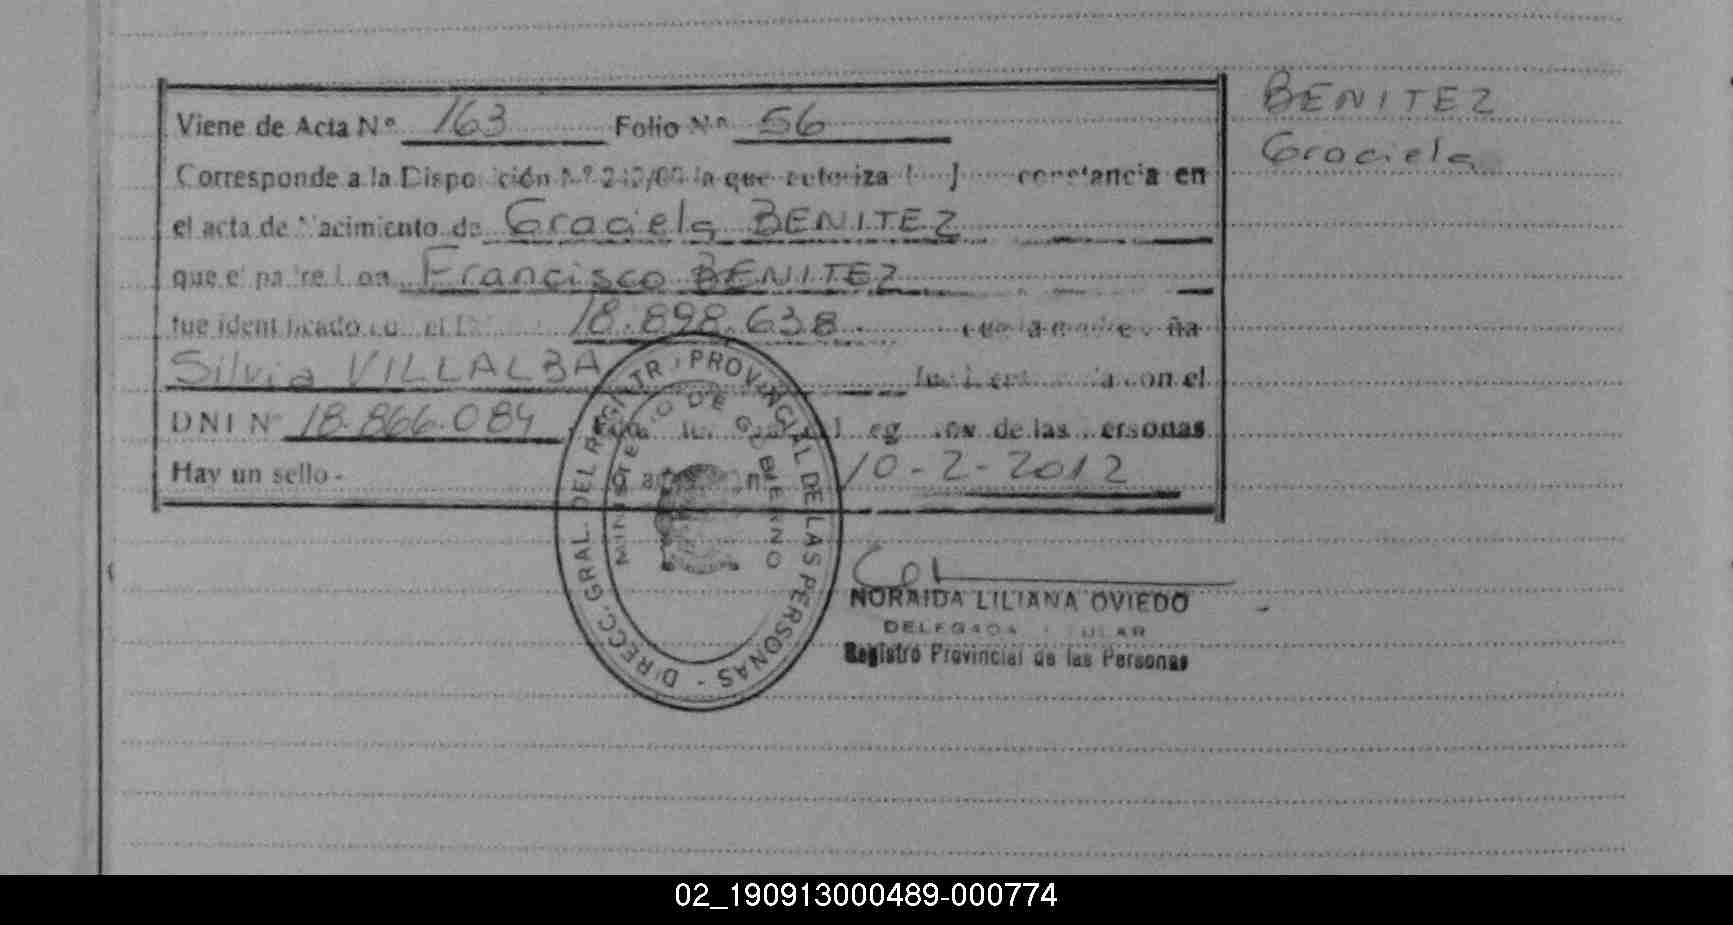 Viene de Acta Nº 163 Folio Nº 56
BENITEZ
Graciela
Corresponde a la Disposición Nº que autoriza constancia en
el acta de Nacimiento de Graciela BENITEZ
que el padre Don Francisco BENITEZ
fue identificado 18.898.638
Silvia VILLALBA con el
DNI Nº 18.866.084 de las Personas
Hay un sello - 10-2-2012
DIRECC. GRAL. DEL REGISTR. PROVINCIAL DE LAS PERSONAS -
MINISTERIO DE GOBIERNO
NORAIDA LILIANA OVIEDO
DELEGADA
Registro Provincial de las Personas
02_190913000489-000774